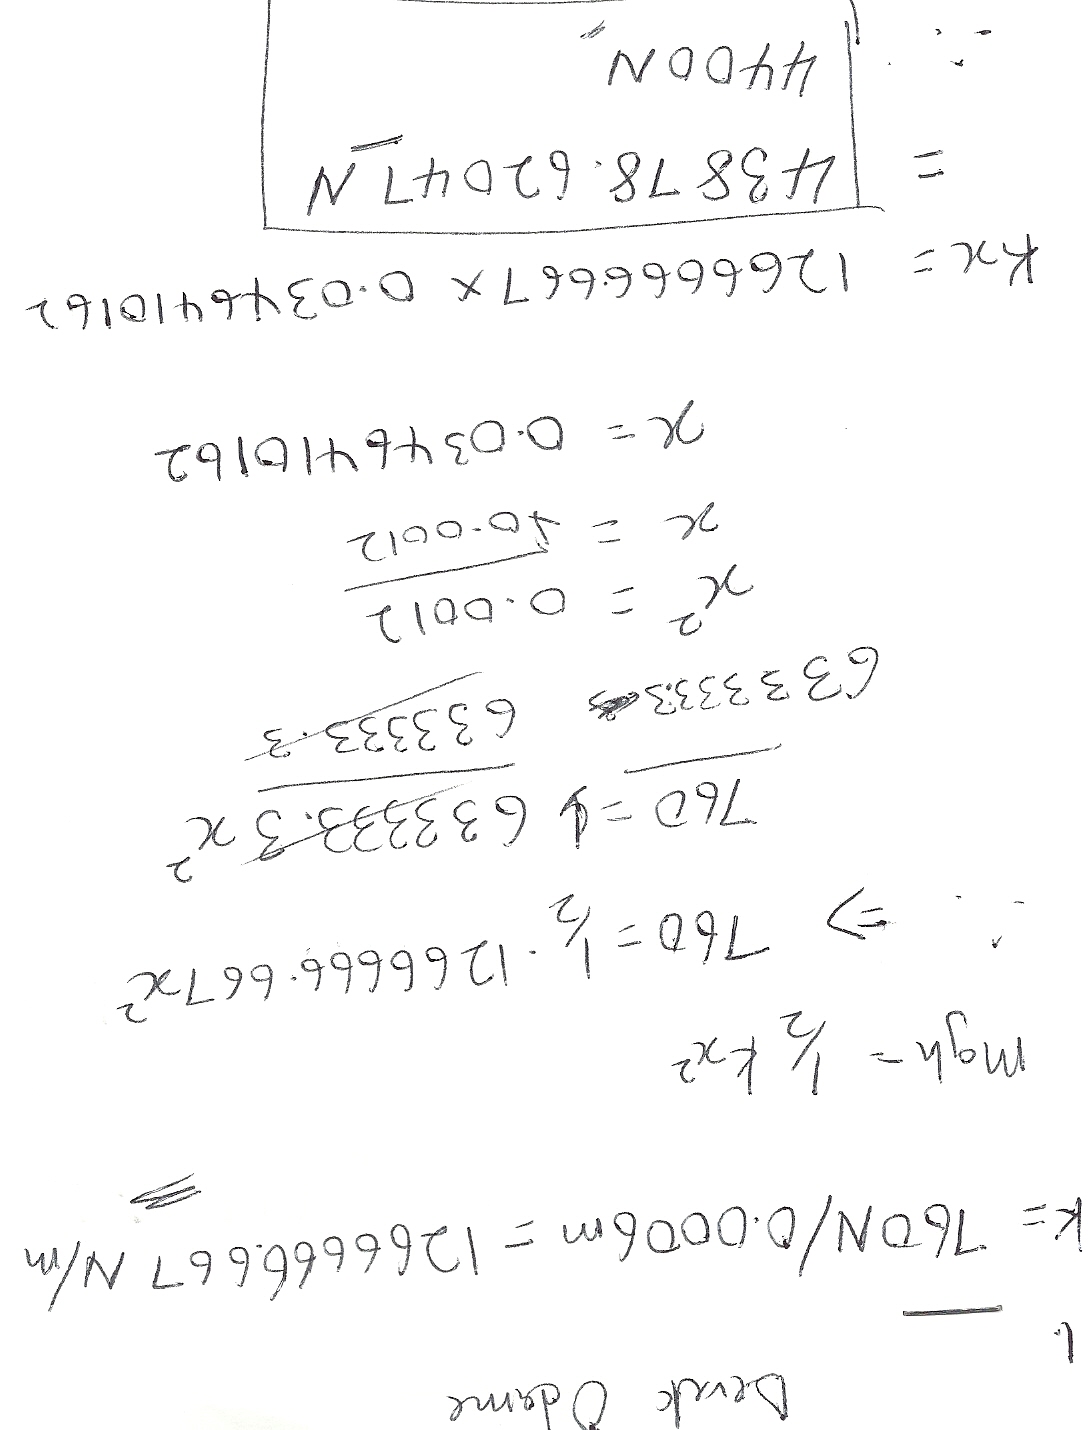 Derek Odame
1.
K = 760N/0.0006m = 1266666.667 N/m
Mgh = 1/2 kx²
∴ ⇒ 760 = 1/2 · 1266666.667x²
760 = 633333.3 x²
633333.3 633333.3
x² = 0.0012
x = √0.0012
x = 0.0346410162
Kx = 1266666.667 x 0.0346410162
= 43878.62047 N
∴ 4400N